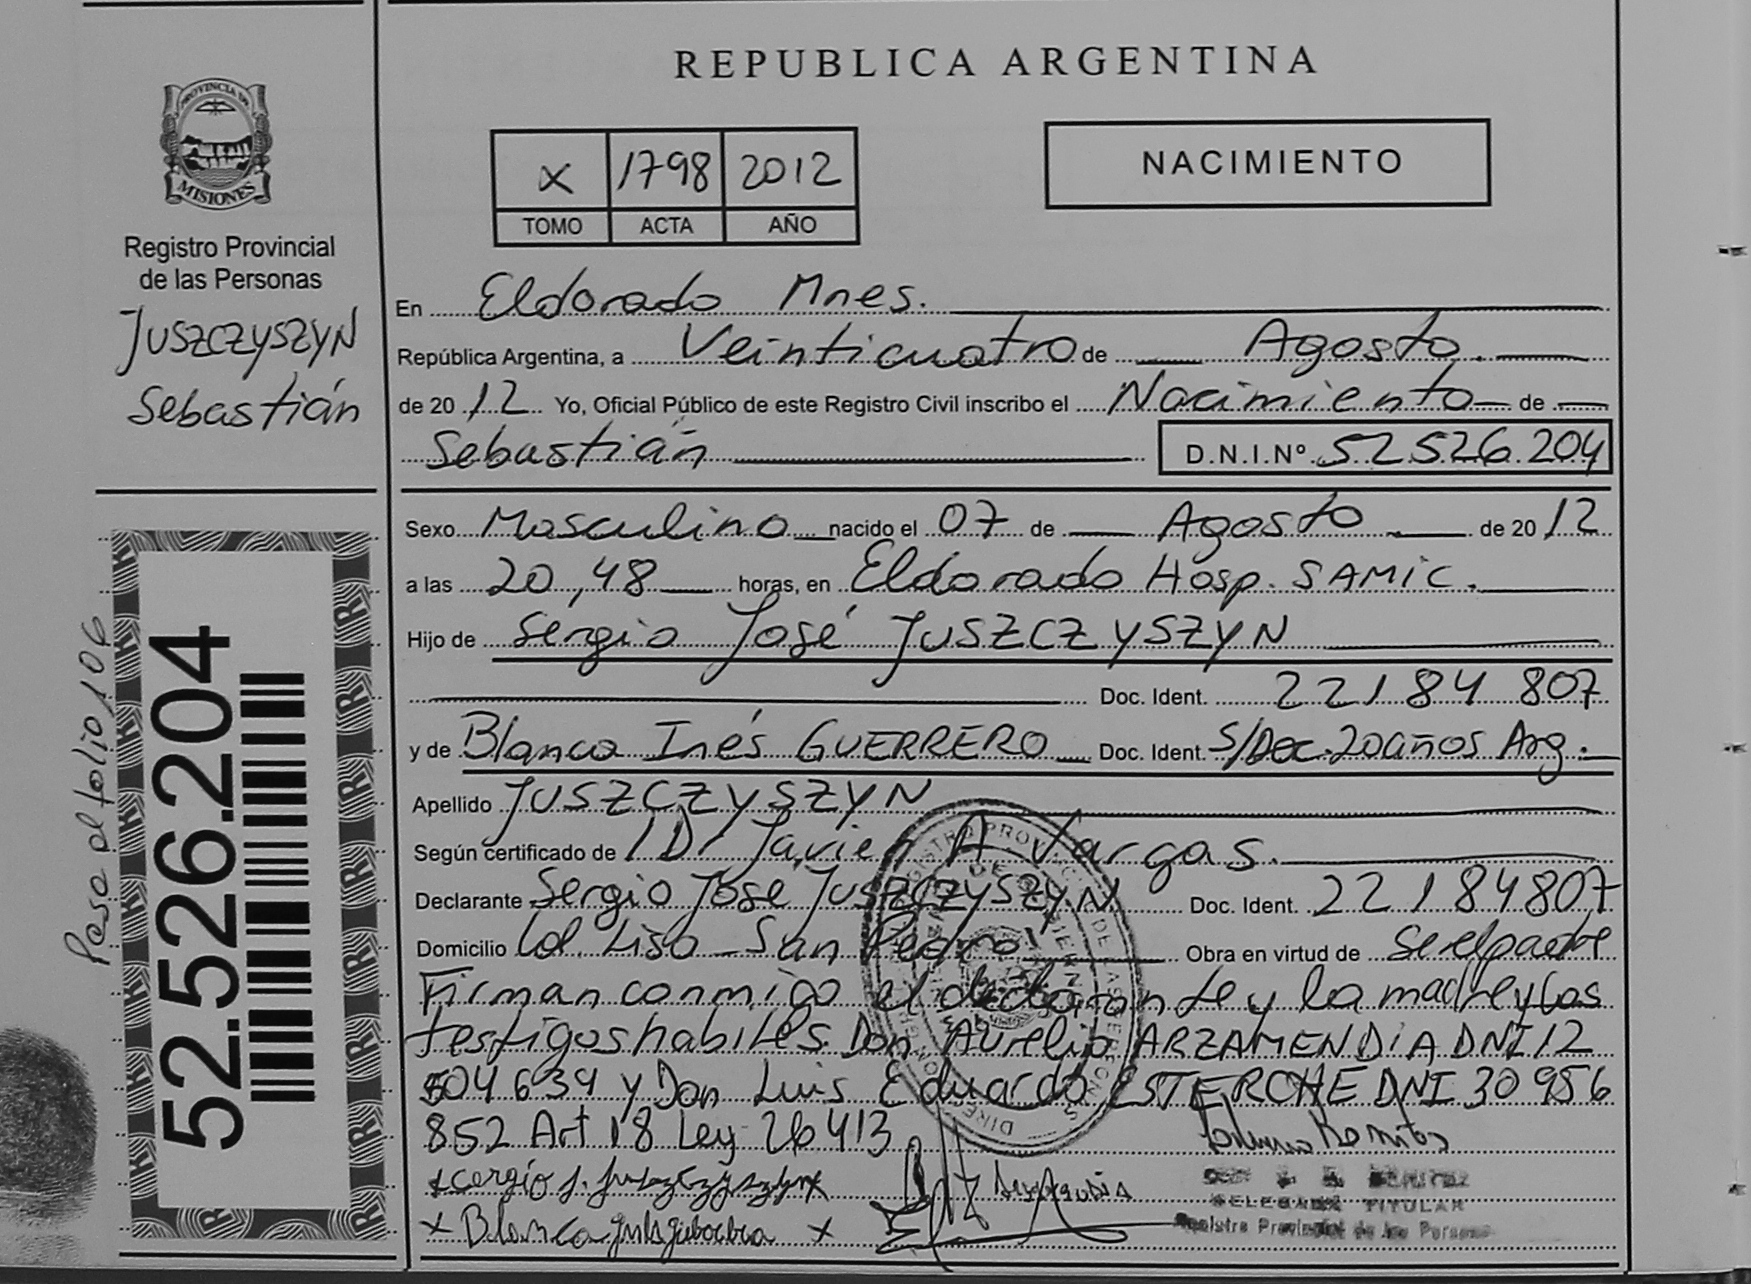 REPUBLICA ARGENTINA
PROVINCIA DE
MISIONES
Registro Provincial
de las Personas
JUSZCZYSZYN
Sebastián
x 1798 2012
TOMO ACTA AÑO
NACIMIENTO
En Eldorado Mnes.
República Argentina, a Veinticuatro de Agosto
de 2012 Yo, Oficial Público de este Registro Civil inscribo el Nacimiento de
Sebastián D.N.I.Nº 52526.204
Sexo Masculino nacido el 07 de Agosto de 2012
a las 20,48 horas, en Eldorado Hosp. SAMIC.
Hijo de Sergio José JUSZCZYSZYN
Doc. Ident. 22184 807
y de Blanca Inés GUERRERO Doc. Ident. S/Doc. 20años Arg.
Apellido JUSZCZYSZYN
Según certificado de Javier A Vargas.
Declarante Sergio Jose JUSZCZYSZYN Doc. Ident. 22184807
Domicilio Col. Liso San Pedro Obra en virtud de Serelpadre
Firman conmigo el declarante y la madre y los
testigos habiles Don Aurelio ARZAMENDIA DNI 12
504 639 y Don Luis Eduardo ESTERCHE DNI 30 956
852 Art 18 Ley 26413
DELEGADA TITULAR
Registro Provincial de las Personas
Paso al folio 106
52.526.204